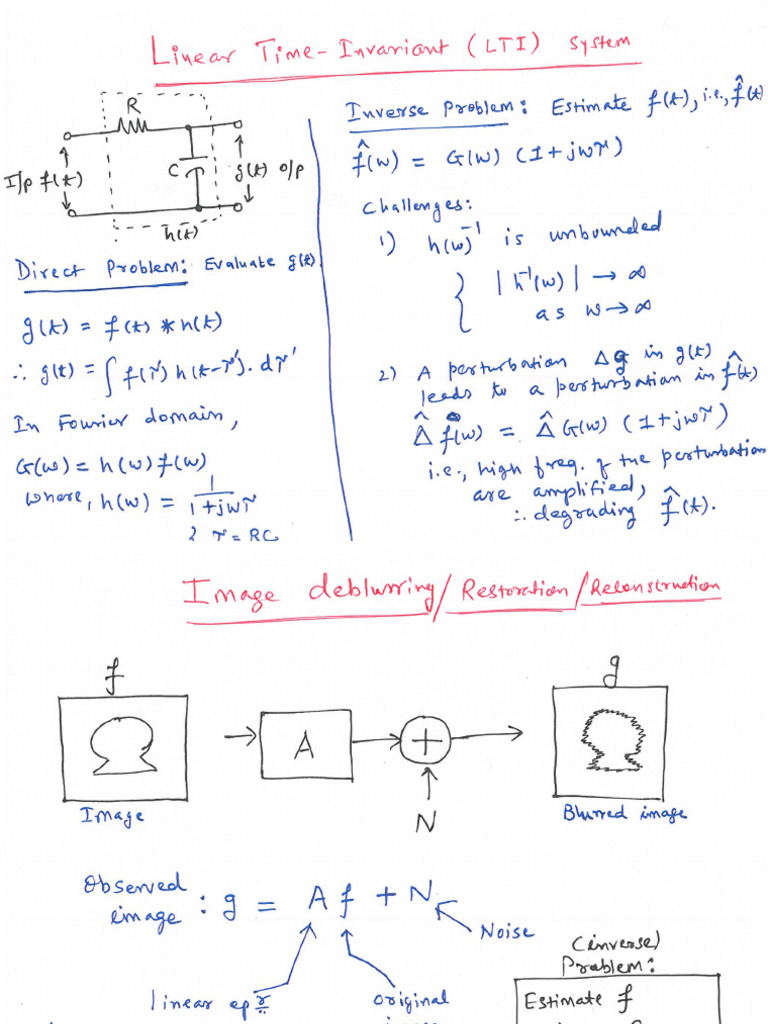 Linear Time-Invariant (LTI) System
R
I/p f(t)
C
g(t) o/p
h(t)
Direct Problem: Evaluate g(t).
g(t) = f(t) * h(t)
∴ g(t) = ∫ f(τ') h(t-τ'). dτ'
In Fourier domain,
G(ω) = h(ω) f(ω)
where, h(ω) = 1/(1+jωτ)
& τ = RC
Inverse Problem: Estimate f(t), i.e., f̂(t)
f̂(ω) = G(ω) (1+jωτ)
Challenges:
1) h(ω)⁻¹ is unbounded
{ |h⁻¹(ω)| → ∞
as ω → ∞
2) A perturbation Δg in g(t)
leads to a perturbation in f̂(t)
Δ̂ f̂(ω) = Δ̂ G(ω) (1+jωτ)
i.e., high freq. of the perturbation
are amplified,
∴ degrading f̂(t).
Image deblurring/Restoration/Reconstruction
f
g
A
+
N
Image
Blurred image
Observed
image : g = A f + N
Noise
linear opr
original
(inverse)
Problem:
Estimate f